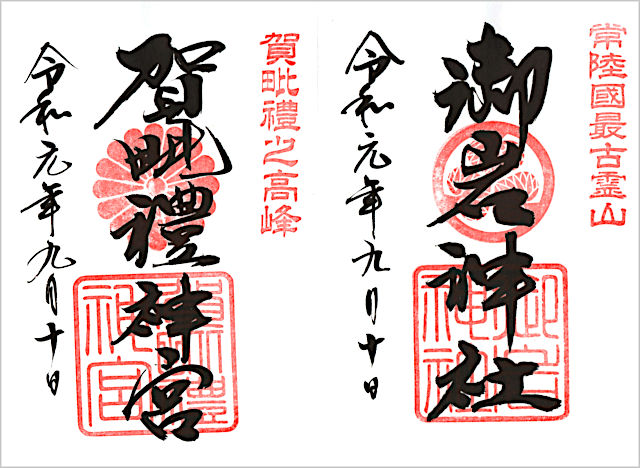 常陸國最古霊山
御岩神社
令和元年九月十日
賀毗禮之高峰
賀毗禮神宮
令和元年九月十日